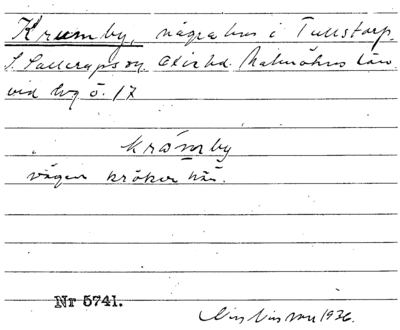 Krumby, några hus i Tullstorp
S. Sallerups sn. Oxie hd. Malmöhus län
vid lvg ö. 17
krómby
vägen kröker här.
Nr 5741.
Nils Nilsson 1936.